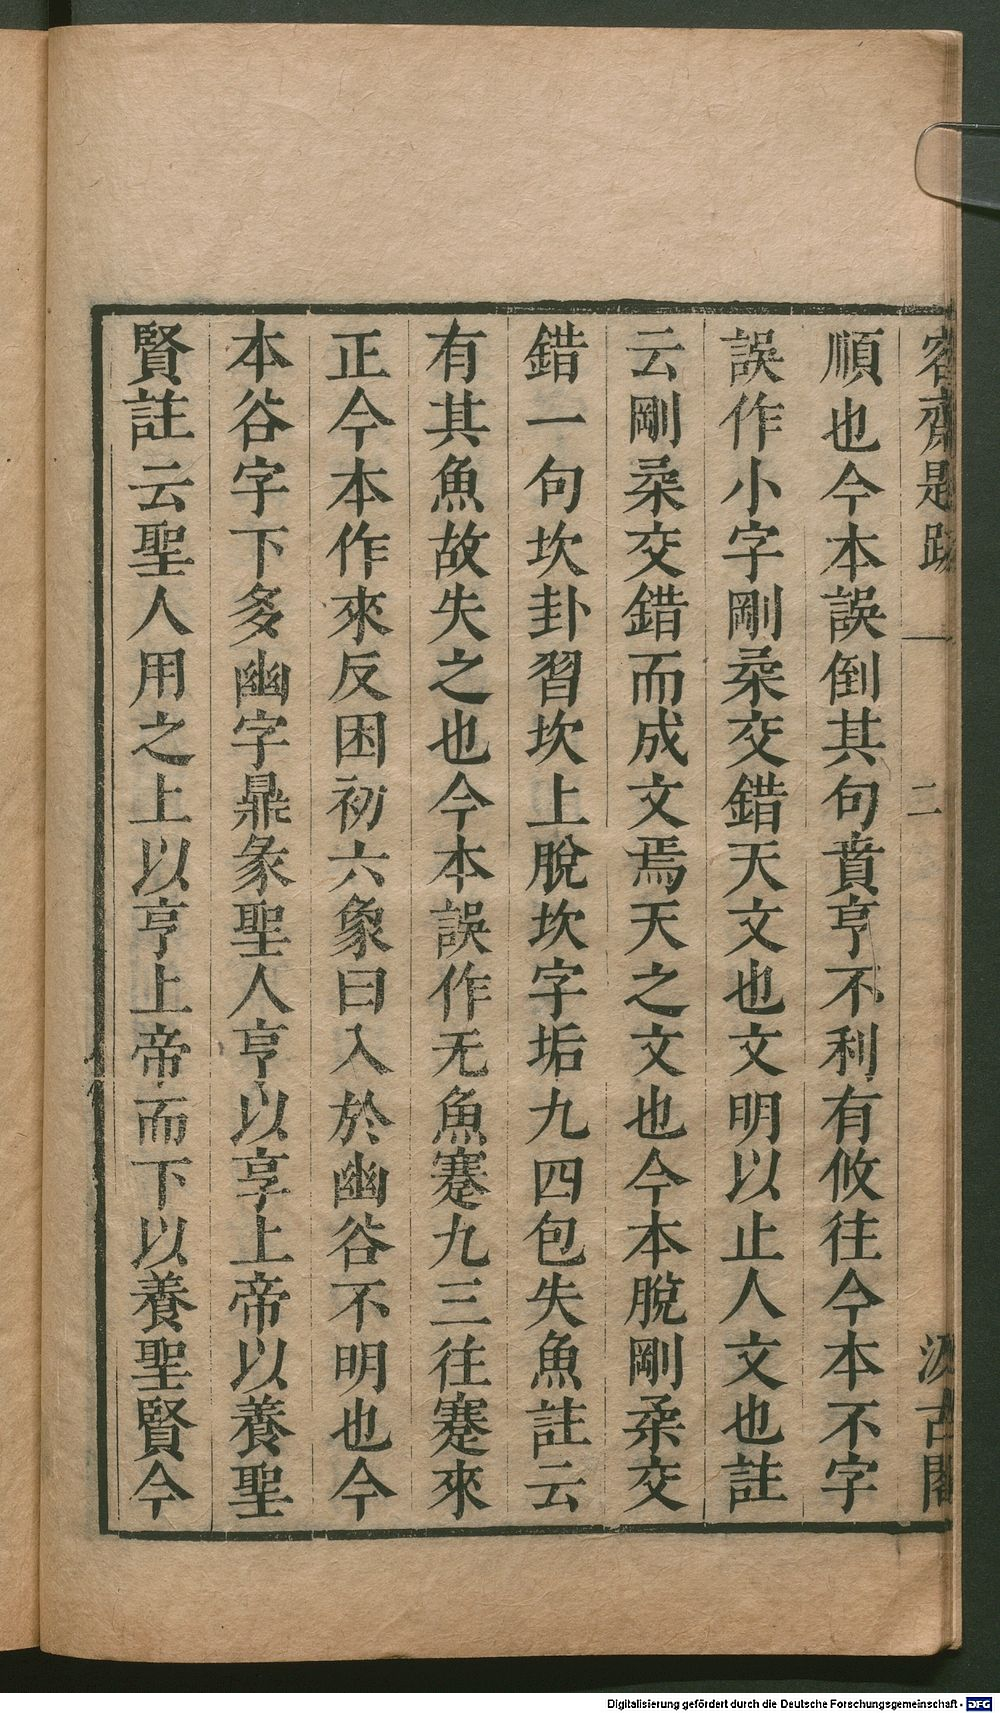 容齋題跋 一 二 汲古閣
順也今本誤倒其句賁亨不利有攸往今本不字
誤作小字剛柔交錯天文也文明以止人文也註
云剛柔交錯而成文焉天之文也今本脫剛柔交
錯一句坎卦習坎上脫坎字垢九四包失魚註云
有其魚故失之也今本誤作无魚蹇九三往蹇來
正今本作來反困初六象曰入於幽谷不明也今
本谷字下多幽字鼎彖聖人亨以享上帝以養聖
賢註云聖人用之上以亨上帝而下以養聖賢今
Digitalisierung gefördert durch die Deutsche Forschungsgemeinschaft - DFG